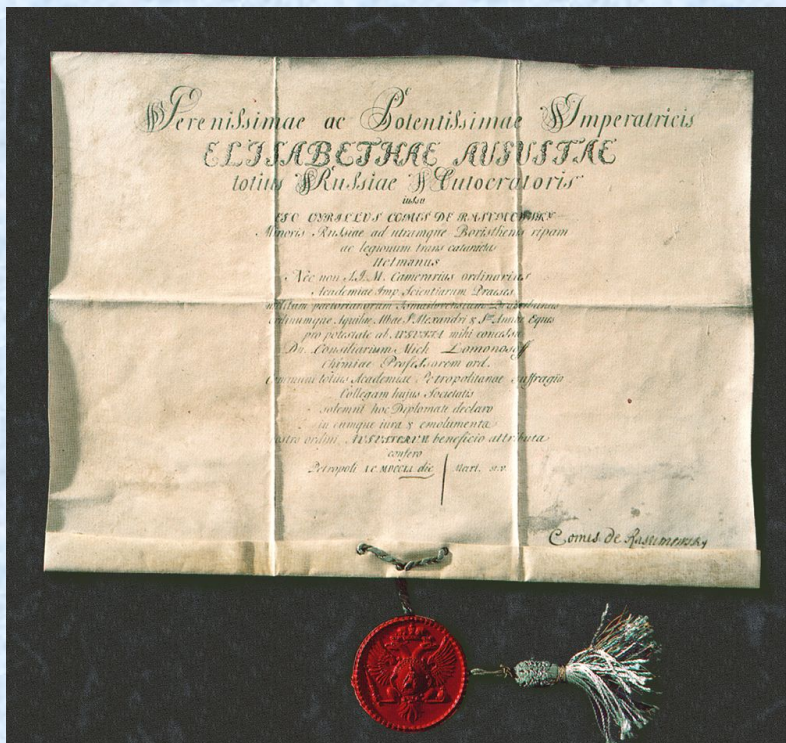 Serenissimae ac Potentissimae Imperatricis
ELISABETHAE AUGUSTAE
totius Russiae Autocratoris
iussu
EGO CYRILLUS COMES DE RASUMOWSKY
Minoris Russiae ad utramque Boristhenis ripam
ac legionum trans
Hetmanus
Nec non S.I.M. Camerarius ordinarius
Academiae Imp. Scientiarum Praeses
ordinumque Aquilae Albae S. Alexandri & S. Annae Eques
pro potestate ab AUGUSTA mihi concessa
Dn. Consiliarium Mich. Lomonosoff
Chimiae Professorem ord.
totius Academiae Petropolitanae suffragio
Collegam hujus Societatis
solemni hoc Diplomate declaro
in eumque iura & emolumenta
ordini, beneficio attributa
confero
Petropoli MDCCLI die Mart.
Comes de Rasumowsky